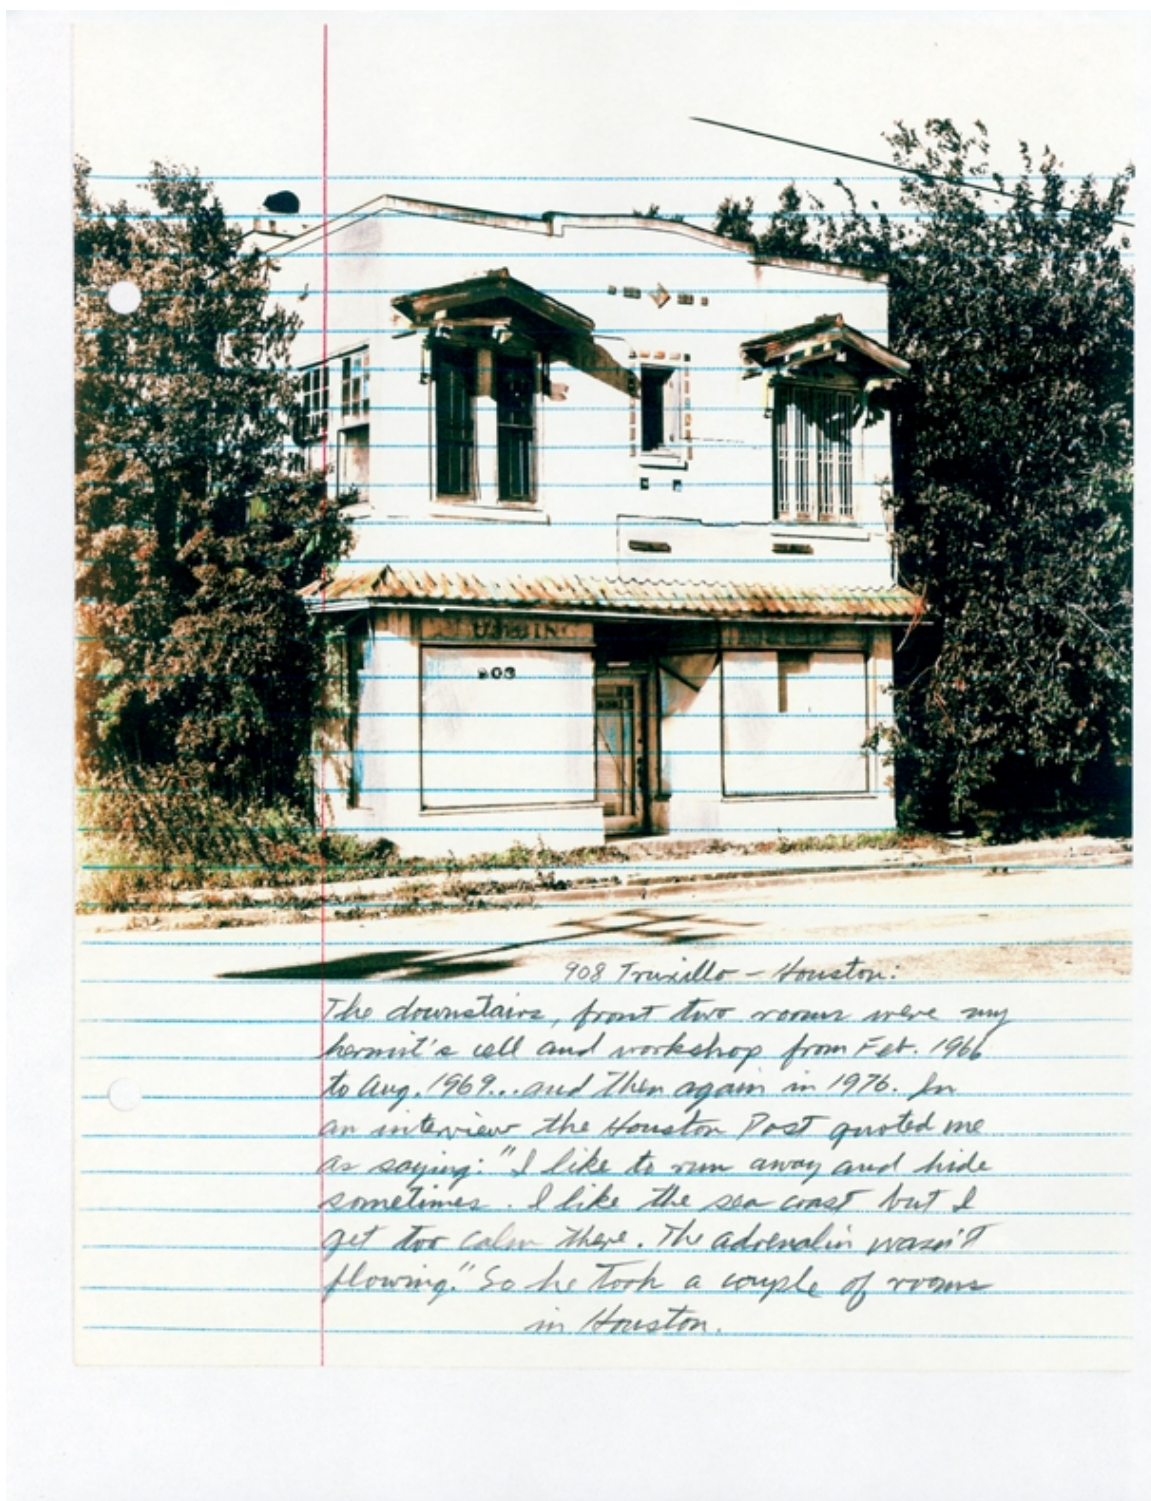 908
908 Truxillo — Houston:
The downstairs, front two rooms were my
hermit's cell and workshop from Feb. 1966
to Aug. 1969... and then again in 1976. In
an interview the Houston Post quoted me
as saying: "I like to run away and hide
sometimes. I like the sea coast but I
get too calm there. The adrenalin wasn't
flowing." So he took a couple of rooms
in Houston.